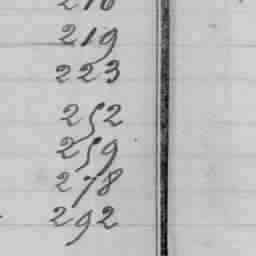 219
223
252
259
278
292